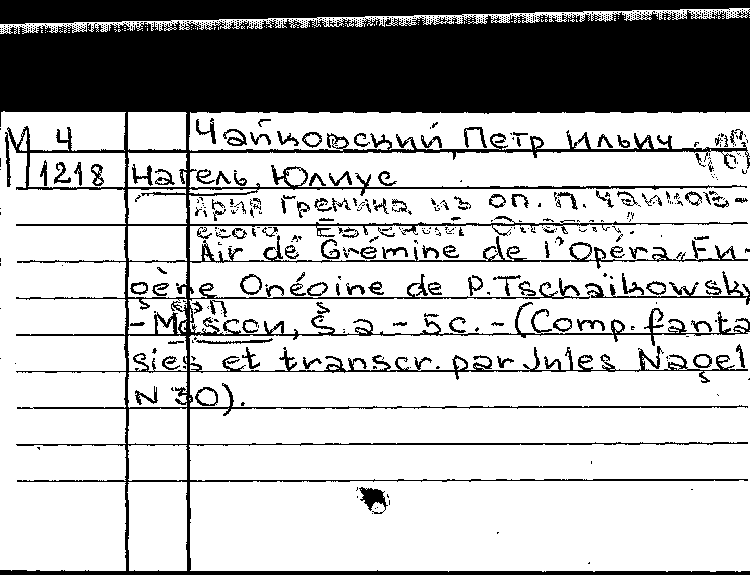 М 4 Чайковский, Петр Ильич
1218 Нагель, Юлиус
Ария Гремина из оп. П. Чайков-
ского „Евгений Онегин".
Air de Grémine de l'Opéra „Eu-
gène Onégine de P. Tschaïkowsky
- Moscou, s. a. - 5 c. - (Comp. fanta
sies et transcr. par Jules Nagel
N 30).